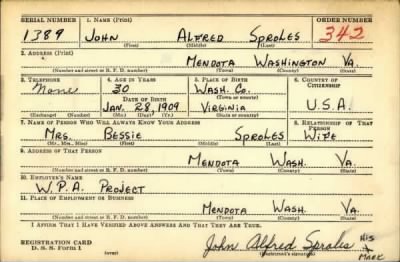 SERIAL NUMBER 1. NAME (Print) ORDER NUMBER
1389 JOHN ALFRED SPROLES 342
(First) (Middle) (Last)
2. ADDRESS (Print)
MENDOTA WASHINGTON VA.
(Number and street or R. F. D. number) (Town) (County) (State)
3. TELEPHONE 4. AGE IN YEARS 5. PLACE OF BIRTH 6. COUNTRY OF CITIZENSHIP
None 30 WASH. CO.
(Town) (County)
DATE OF BIRTH
JAN. 28, 1909 VIRGINIA U.S.A.
(Exchange) (Number) (Mo.) (Day) (Yr.) (State or country)
7. NAME OF PERSON WHO WILL ALWAYS KNOW YOUR ADDRESS 8. RELATIONSHIP OF THAT PERSON
MRS. BESSIE SPROLES WIFE
(Mr., Mrs., Miss) (First) (Middle) (Last)
9. ADDRESS OF THAT PERSON
MENDOTA WASH. VA.
(Number and street or R. F. D. number) (Town) (County) (State)
10. EMPLOYER'S NAME
W.P.A. PROJECT
11. PLACE OF EMPLOYMENT OR BUSINESS
MENDOTA WASH. VA.
(Number and street or R. F. D. number) (Town) (County) (State)
I AFFIRM THAT I HAVE VERIFIED ABOVE ANSWERS AND THAT THEY ARE TRUE.
REGISTRATION CARD
D. S. S. Form 1
(over)
John Alfred Sproles His x Mark
(Registrant's signature)